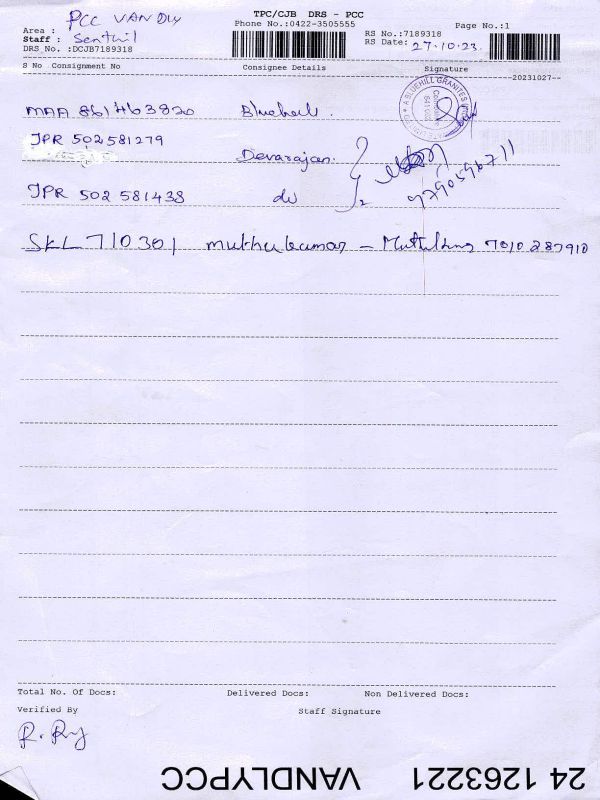 TPC/CJB DRS - PCC
Area : PCC VANDLY Phone No.:0422-3505555 Page No.:1
Staff : Senthil RS No.:7189318
DRS_No. :DCJB7189318 RS Date: 27.10.23
S No Consignment No Consignee Details Signature
--20231027--
A BLUEHILL GRANITES
MAA 861463820 Bluehill.
JPR 502581279 Devarajan.
JPR 502581438 do 2
SKL 710301 Muthukumar - Muthukumar 7010287910
Total No. Of Docs: Delivered Docs: Non Delivered Docs:
Verified By Staff Signature
24 1263221 VANDLYPCC